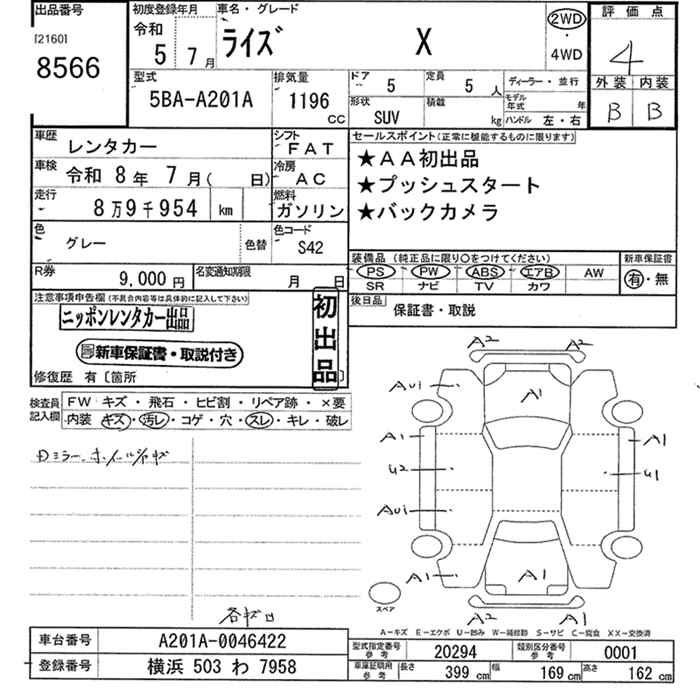 出品番号 初度登録年月 車名・グレード 評価点
[2160] 令和 ライズ X 2WD
8566 5 7月 ・ 4
4WD
外装 内装
型式 排気量 ドア 5 定員 5人 ディーラー・並行 B B
5BA-A201A 1196 cc 形状 SUV 積載 kg モデル年式 年
ハンドル 左・右
車歴 レンタカー シフト FAT セールスポイント(正常に機能するものに限ります)
車検 令和 8年 7月( 日) 冷房 AC ★AA初出品
走行 8万9千954 km 燃料 ガソリン ★プッシュスタート
★バックカメラ
色 グレー 色替 色コード S42
装備品(純正品に限り○をつけてください) 新車保証書
R券 9,000円 名変通知期限 月 日 PS PW ABS エアB AW 有・無
SR ナビ TV カワ
注意事項申告欄(不具合内容等は具体的に記入して下さい) 初出品 後日品 保証書・取説
ニッポンレンタカー出品
新車保証書・取説付き
修復歴 有〔箇所 〕
検査員記入欄 FW キズ・飛石・ヒビ割・リペア跡・×要
内装 キズ・汚レ・コゲ・穴・スレ・キレ・破レ
A2 A2
A1
A1 A1
U2 U1
A1 A1
A2 A1
スペア
A-キズ E-エクボ U-凹み W-補修跡 S-サビ C-腐食 XX-交換済
車台番号 A201A-0046422 型式指定番号 参考 20294 類別区分番号 参考 0001
登録番号 横浜 503 わ 7958 車庫証明用 参考 長さ 399 cm 幅 169 cm 高さ 162 cm